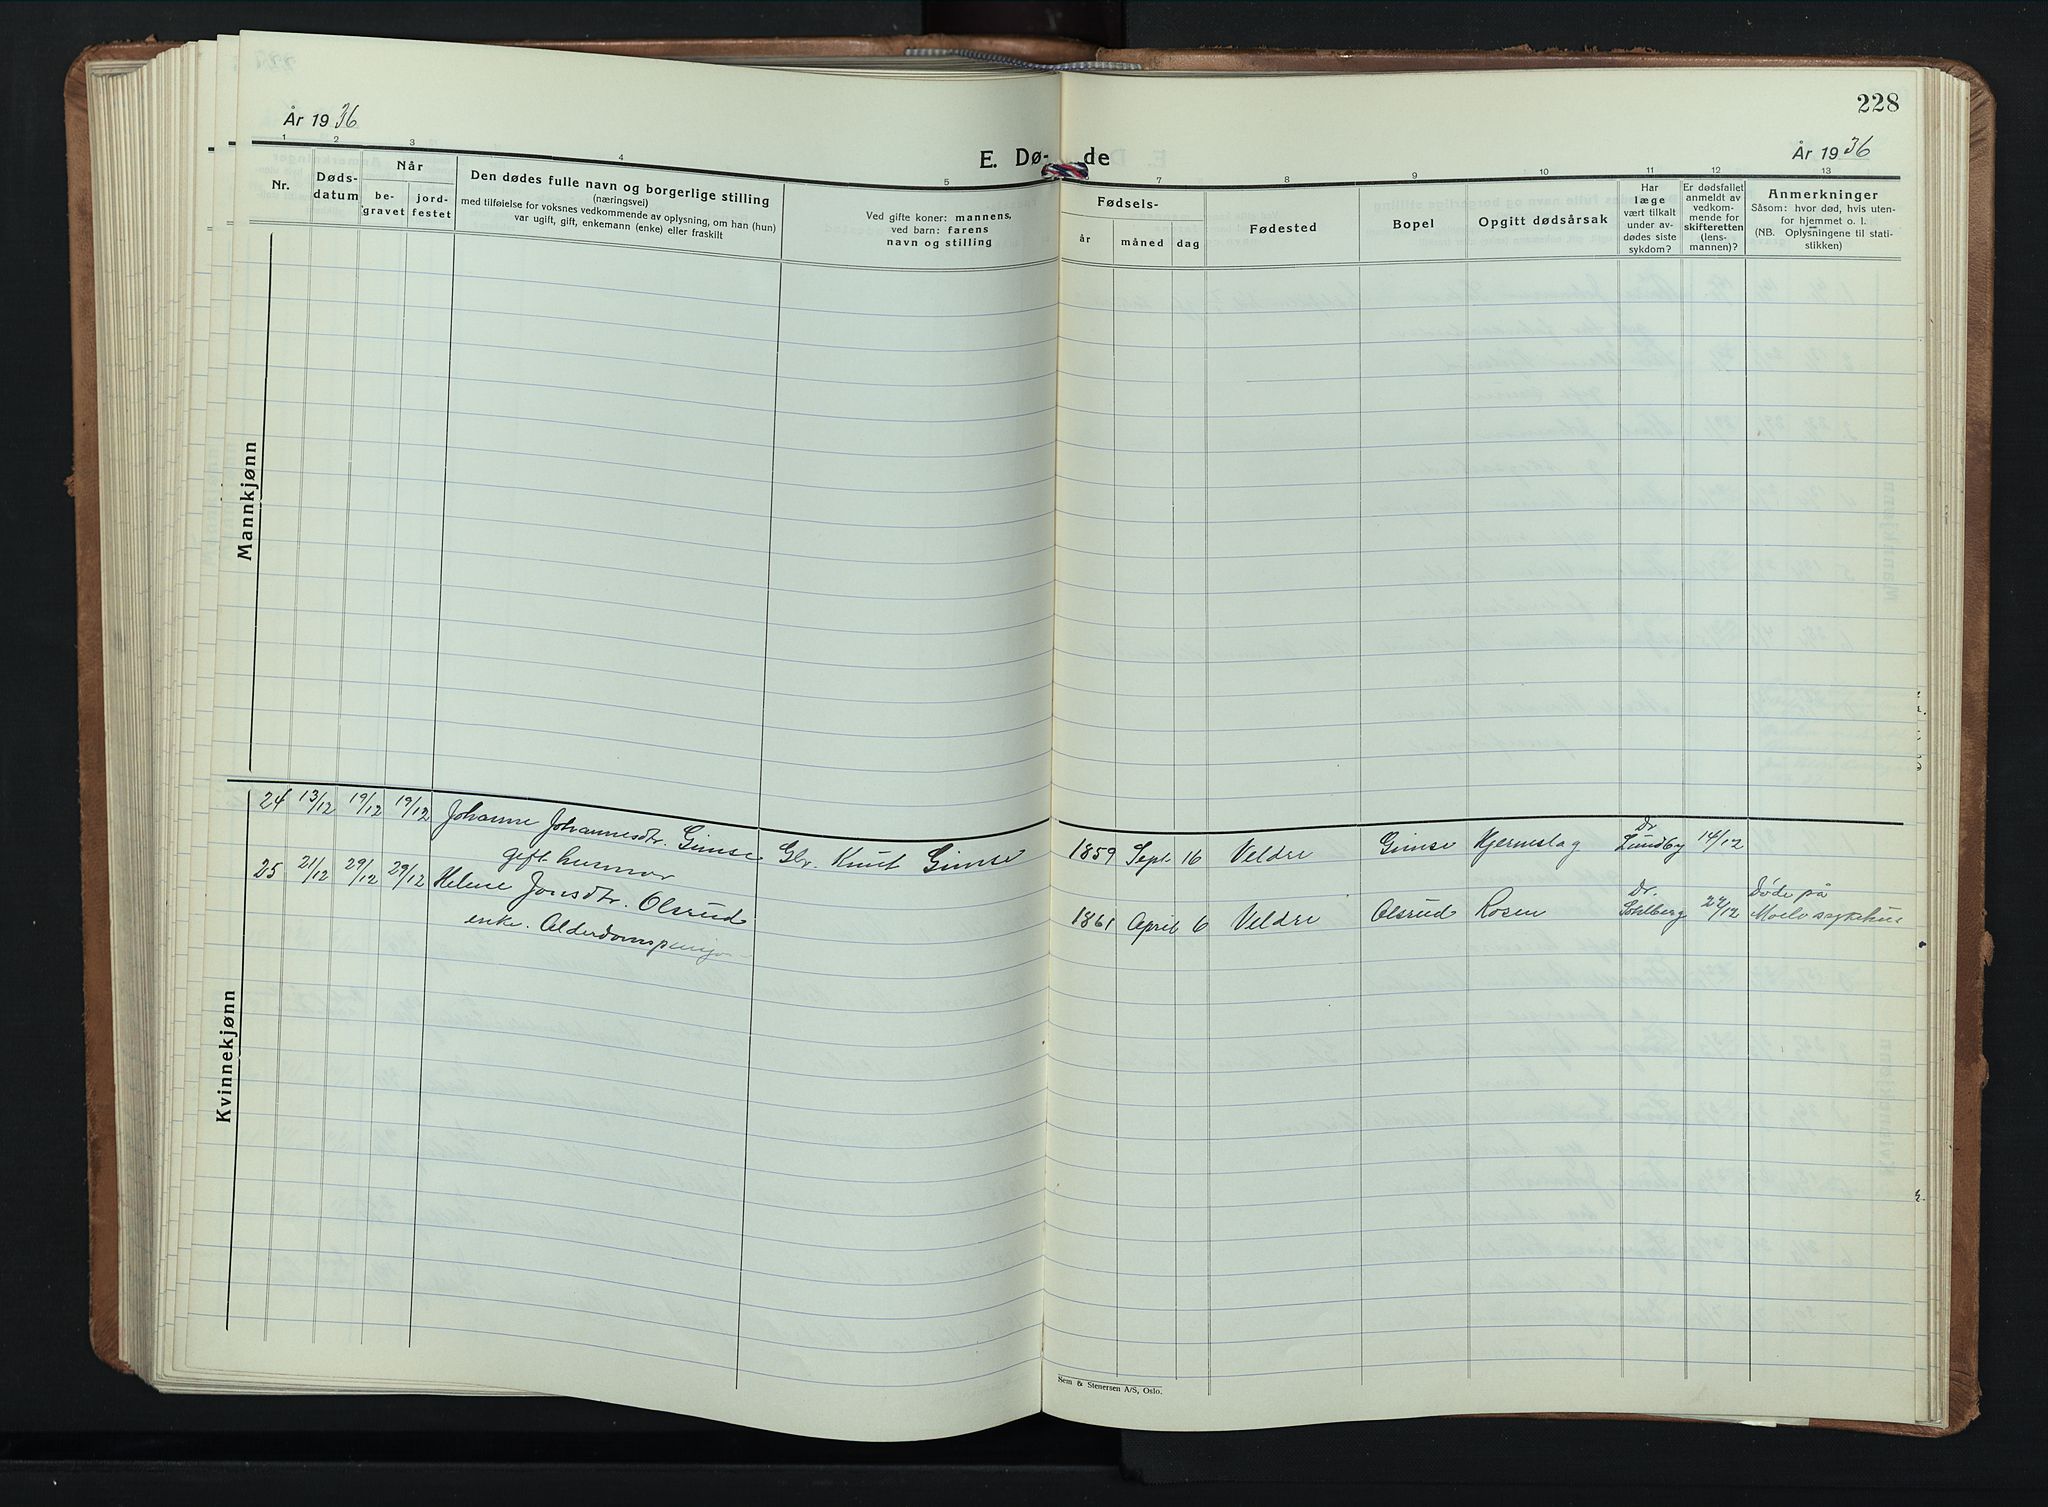 228
År 1936
År 1936
E. Dø- de
1 2 3 4 5 7 8 9 10 11 12 13
Nr.
Døds-
datum
Når
be-
gravet
jord-
festet
Den dødes fulle navn og borgerlige stilling
(næringsvei)
med tilføielse for voksnes vedkommende av oplysning, om han (hun)
var ugift, gift, enkemann (enke) eller fraskilt
Ved gifte koner: mannens,
ved barn: farens
navn og stilling
Fødsels-
år
måned
dag
Fødested
Bopel
Opgitt dødsårsak
Har
læge
vært tilkalt
under av-
dødes siste
sykdom?
Er dødsfallet
anmeldt av
vedkom-
mende for
skifteretten
(lens-
mannen)?
Anmerkninger
Såsom: hvor død, hvis uten-
for hjemmet o. l.
(NB. Oplysningene til stati-
stikken)
Mannkjønn
Kvinnekjønn
24 13/12 19/12 19/12 Johanne Johannesdtr. Gimse Gbr. Knut Gimse 1859 Sept. 16 Veldre Gimse Hjerneslag Dr. Lundby 14/12
gift husmor
25 21/12 29/12 29/12 Helene Jonsdtr. Olsrud 1861 April 6 Veldre Olsrud Rosen Dr. Sohlberg 22/12 Døde på
enke. Alderdomspensjon Moelv sykehus
Sem & Stenersen A/S, Oslo.